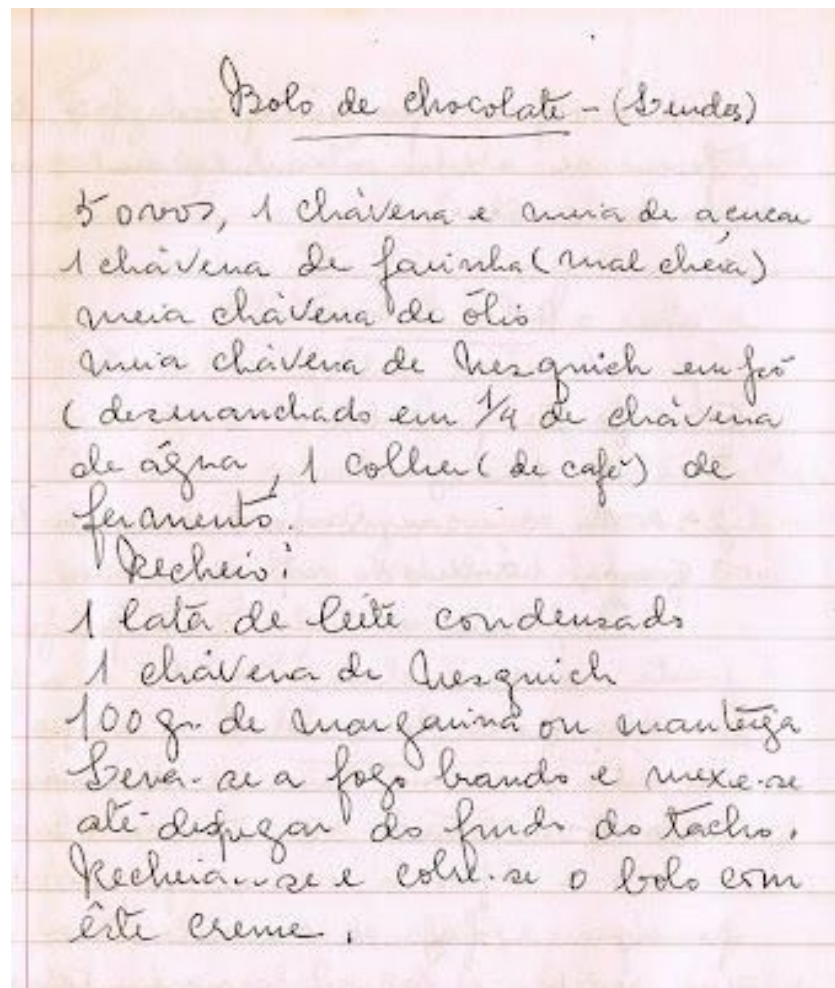 Bolo de chocolate - (Lindo)
5 ovos, 1 chávena e meia de açucar
1 chávena de farinha (mal cheia)
meia chávena de ólio
meia chávena de Nesquich em pó
(desmanchado em 1/4 de chávena
de água, 1 colher (de café) de
fermento.
Recheio:
1 lata de leite condensado
1 chávena de Nesquich
100 gr. de margarina ou manteiga
Leva-se a fogo brando e mexe-se
até despegar do fundo do tacho.
Recheia-se e cobre-se o bolo com
êste creme.